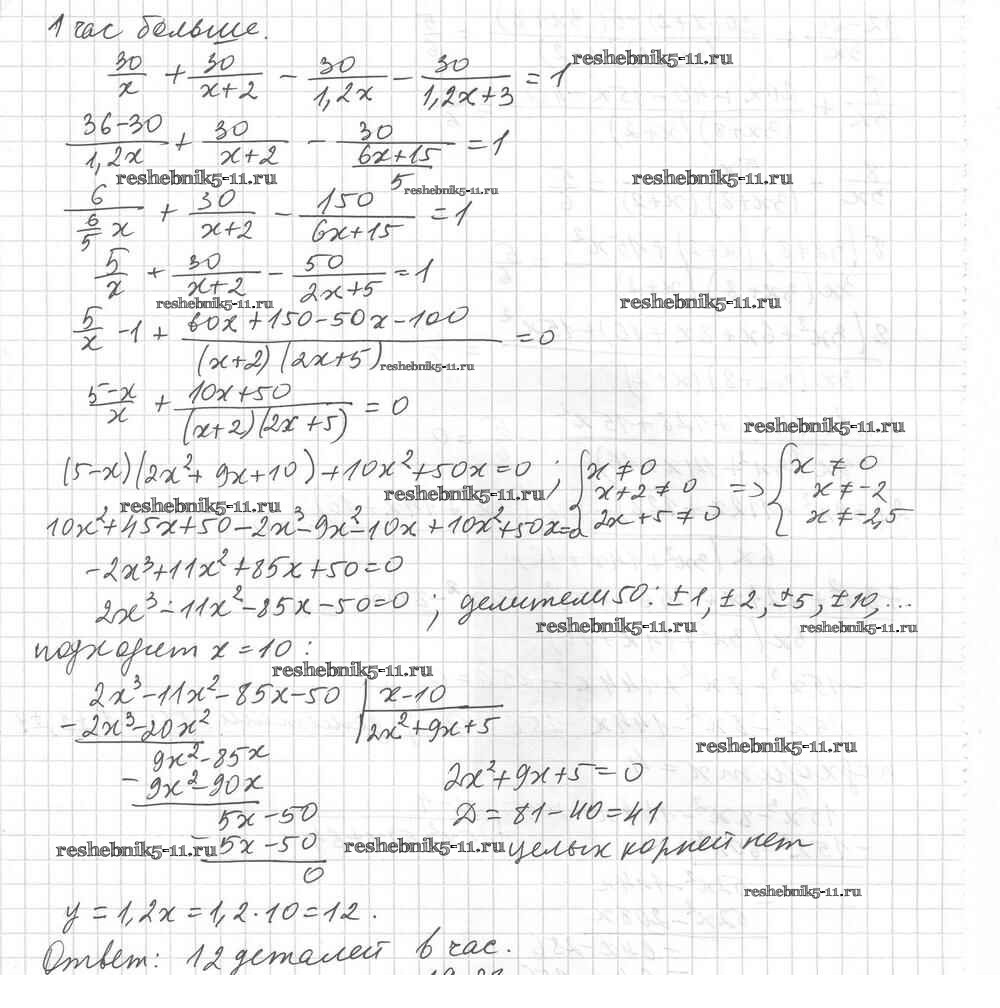 1 час больше.
30/x + 30/(x+2) - 30/(1,2x) - 30/(1,2x+3) = 1 reshebnik5-11.ru
(36-30)/(1,2x) + 30/(x+2) - 30/((6x+15)/5) = 1
reshebnik5-11.ru reshebnik5-11.ru reshebnik5-11.ru
6/((6/5)x) + 30/(x+2) - 150/(6x+15) = 1
5/x + 30/(x+2) - 50/(2x+5) = 1
reshebnik5-11.ru reshebnik5-11.ru
5/x - 1 + (60x+150-50x-100)/((x+2)(2x+5)) = 0
reshebnik5-11.ru
(5-x)/x + (10x+50)/((x+2)(2x+5)) = 0
reshebnik5-11.ru
(5-x)(2x²+9x+10)+10x²+50x=0 ; { x≠0 x+2≠0 2x+5≠0 => { x≠0 x≠-2 x≠-2,5
reshebnik5-11.ru reshebnik5-11.ru
10x²+45x+50-2x³-9x²-10x+10x²+50x=0
-2x³+11x²+85x+50=0
2x³-11x²-85x-50=0 ; делители 50: ±1, ±2, ±5, ±10,...
reshebnik5-11.ru reshebnik5-11.ru
подходит x=10:
reshebnik5-11.ru
2x³-11x²-85x-50 | x-10
- 2x³-20x² | 2x²+9x+5
reshebnik5-11.ru
9x²-85x
- 9x²-90x
2x²+9x+5=0
5x-50
Д=81-40=41
- 5x-50
reshebnik5-11.ru reshebnik5-11.ru целых корней нет
0
reshebnik5-11.ru
y=1,2x=1,2·10=12.
Ответ: 12 деталей в час.